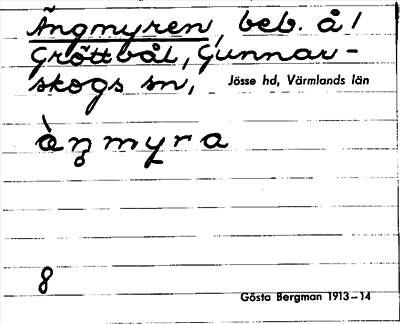 Ängmyren, beb. å /
Gröttvål, Gunnar-
skogs sn, Jösse hd, Värmlands län
àn̥myra
8
Gösta Bergman 1913–14